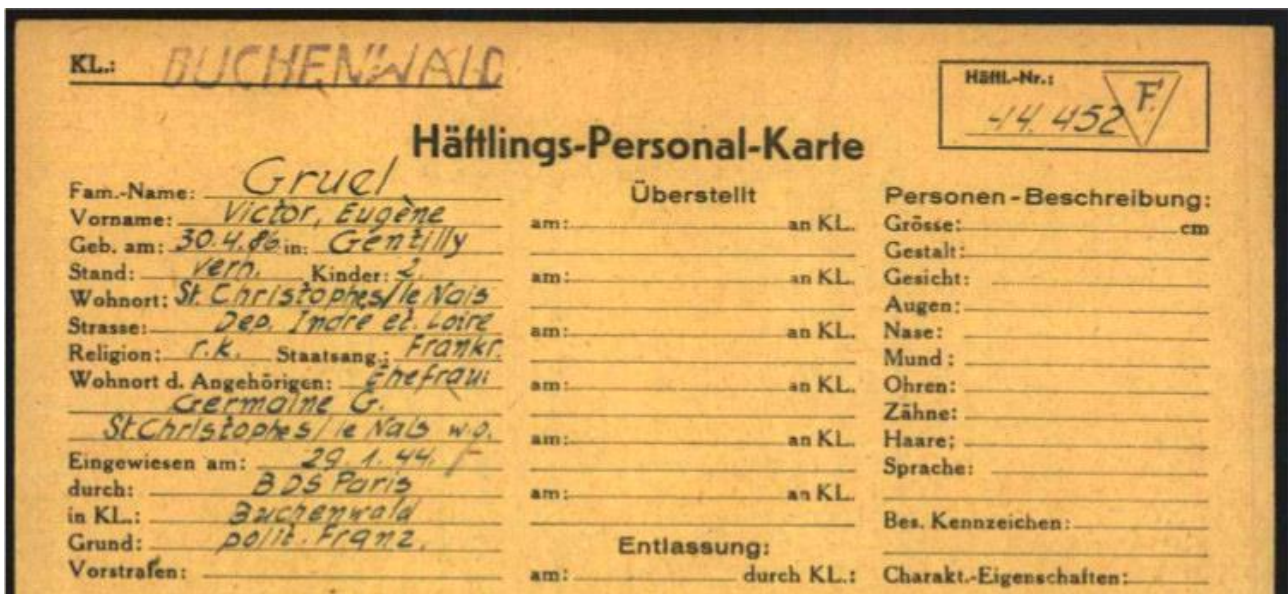 KL.: BUCHENWALD
Häftl.-Nr.:
14.452 F.
Häftlings-Personal-Karte
Fam.-Name: Gruel
Vorname: Victor, Eugène
Geb. am: 30.4.86 in: Gentilly
Stand: verh. Kinder: 2.
Wohnort: St. Christophes/le Nais
Strasse: Dep. Indre et. Loire
Religion: r.k. Staatsang.: Frankr.
Wohnort d. Angehörigen: Ehefrau:
Germaine G.
St. Christophes/le Nais w.o.
Eingewiesen am: 29.1.44.
durch: BDS Paris
in KL.: Buchenwald
Grund: polit. Franz.
Vorstrafen:
Überstellt
am: an KL.
am: an KL.
am: an KL.
am: an KL.
am: an KL.
am: an KL.
Entlassung:
am: durch KL.:
Personen-Beschreibung:
Grösse: cm
Gestalt:
Gesicht:
Augen:
Nase:
Mund:
Ohren:
Zähne:
Haare:
Sprache:
Bes. Kennzeichen:
Charakt.-Eigenschaften: